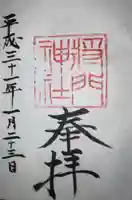 奉拝
将門
神社
平成三十一年一月二十三日